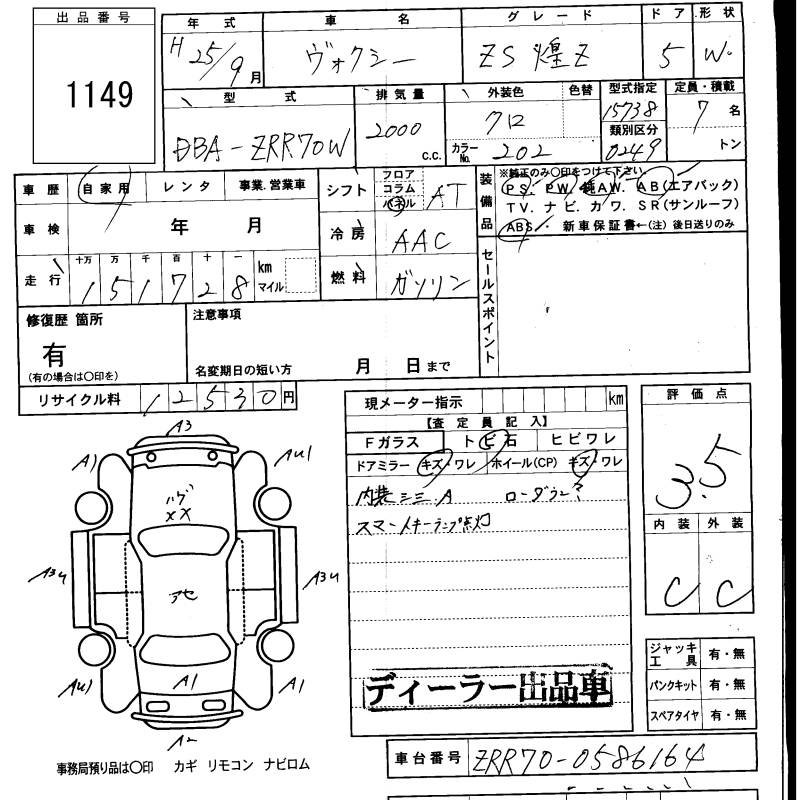 出品番号
1149
年式 車名 グレード ドア 形状
H 25/9月 ヴォクシー ZS 煌Z 5 W
型式 排気量 外装色 色替 型式指定 定員・積載
DBA-ZRR70W 2000 C.C. クロ 15738 7名
カラーNo. 202 類別区分 0249 トン
車歴 自家用 レンタ 事業.営業車
車検 年 月
走行 十万 万 千 百 十 一
1 5 1 7 2 8 km マイル
シフト フロア コラム パネル AT
冷房 AAC
燃料 ガソリン
装備品
※純正のみ○印をつけて下さい。
PS. PW. 純AW. AB(エアバック)
TV. ナビ. カワ. SR(サンルーフ)
ABS. 新車保証書←(注) 後日送りのみ
セールスポイント
修復歴 箇所
有
(有の場合は○印を)
注意事項
名変期日の短い方 月 日まで
リサイクル料 12530円
現メーター指示 km
【査定員記入】
Fガラス トビ石 ヒビワレ
ドアミラー キズ・ワレ ホイール(CP) キズ・ワレ
内装 A
スマートキーランプ点灯
ディーラー出品車
評価点
3.5
内装 外装
C C
ジャッキ工具 有・無
パンクキット 有・無
スペアタイヤ 有・無
A3
A1 AU1
ハゲ
XX
A3U A3U
アセ
AU1 A1 A1
A2
事務局預り品は○印 カギ リモコン ナビロム
車台番号 ZRR70-0586164